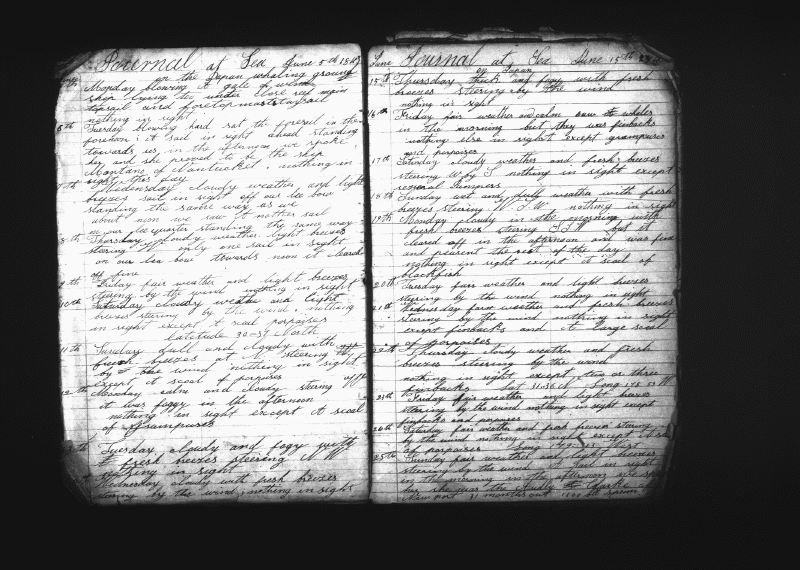 Journal at Sea June 5th 184
on the Japan whaling ground
Monday blowing a gale of wind
ship lying too under close reef main
topsail and foretopmaststaysail
nothing in sight
6th Tuesday blowing hard sat the foresail in the
forenoon; A Sail in sight ahead standing
towards us in the afternoon we spoke
her and she proved to be the ship
of Nantucket, nothing in
sight this day
7th Wednesday cloudy weather and light
breezes sail in sight off our lee bow
standing the same way as we
about noon we saw Another sail
on our lee quarter standing the same way
8th Thursday cloudy weather light breezes
steering only one sail in sight
on our lea bow towards noon it cleared
off fine
9th Friday fair weather and light breezes
stering by the wind nothing in sight
10th Saturday cloudy weather and light
breezes stering by the wind, nothing
in sight except A scool porpoises
Latitude 30=37 North
11th Sunday dull and cloudy with
fresh breezes at N. steering
by the wind nothing in sight
except A scool of porpoises
12th Monday calm and cloudy
it was foggy in the afternoon
nothing in sight except A scool
of grampuses
Tuesday cloudy and fogy with
fresh breezes steering N W
nothing in sight
Wednesday cloudy with fresh breezes
stering by the wind, nothing in sight
June Journal at Sea June 15th
on Japan
15th Thursday thick and fogy with fresh
breezes steering by the wind
nothing in sight
16th Friday fair weather and calm saw whales
in the morning but they was finbacks
nothing else in sight except grampuses
and porpoises
17th Saturday cloudy weather and fresh breezes
stering W by S nothing in sight except
several jumpers
18th Sunday wet and puff weather with fresh
breezes stering W. nothing in sight
19th Monday cloudy in the morning with
fresh breezes stering S.S.W. but it
cleared off in the afternoon and was fine
and pleasent the rest of the day
nothing in sight except A scool of
blackfish
20th Tuesday fair weather and light breezes
stering by the wind nothing in sight
21th Wednesday fare weather and fresh breezes
stering by the wind nothing in sight
except finbacks and A large scool
of porpoises
22th Thursday cloudy weather and fresh
breezes steering by the wind
nothing in sight except two or three
finbacks Lat 31,36 N, Long 175 53 W
23th Friday fair weather and light breezes
stering by the wind nothing in sight except
finbacks and porpoises
24th Saturday fair weather and fresh breezes stering
by the wind nothing in sight except A scool
of porpoises
25th Sunday fair weather and light breezes
stering by the wind A sail in sight
in the morning in the afternoon we spoke
her she was the
New port 31 months out 1800 bbs sperm